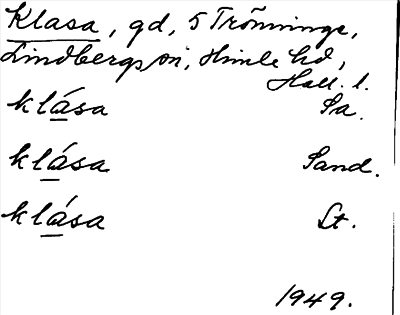 Klasa, gd, 5 Trönninge,
Lindbergs sn, Himle hd,
Hall. l.
klása Sa.
klása Sand.
klása Lt.
1949.